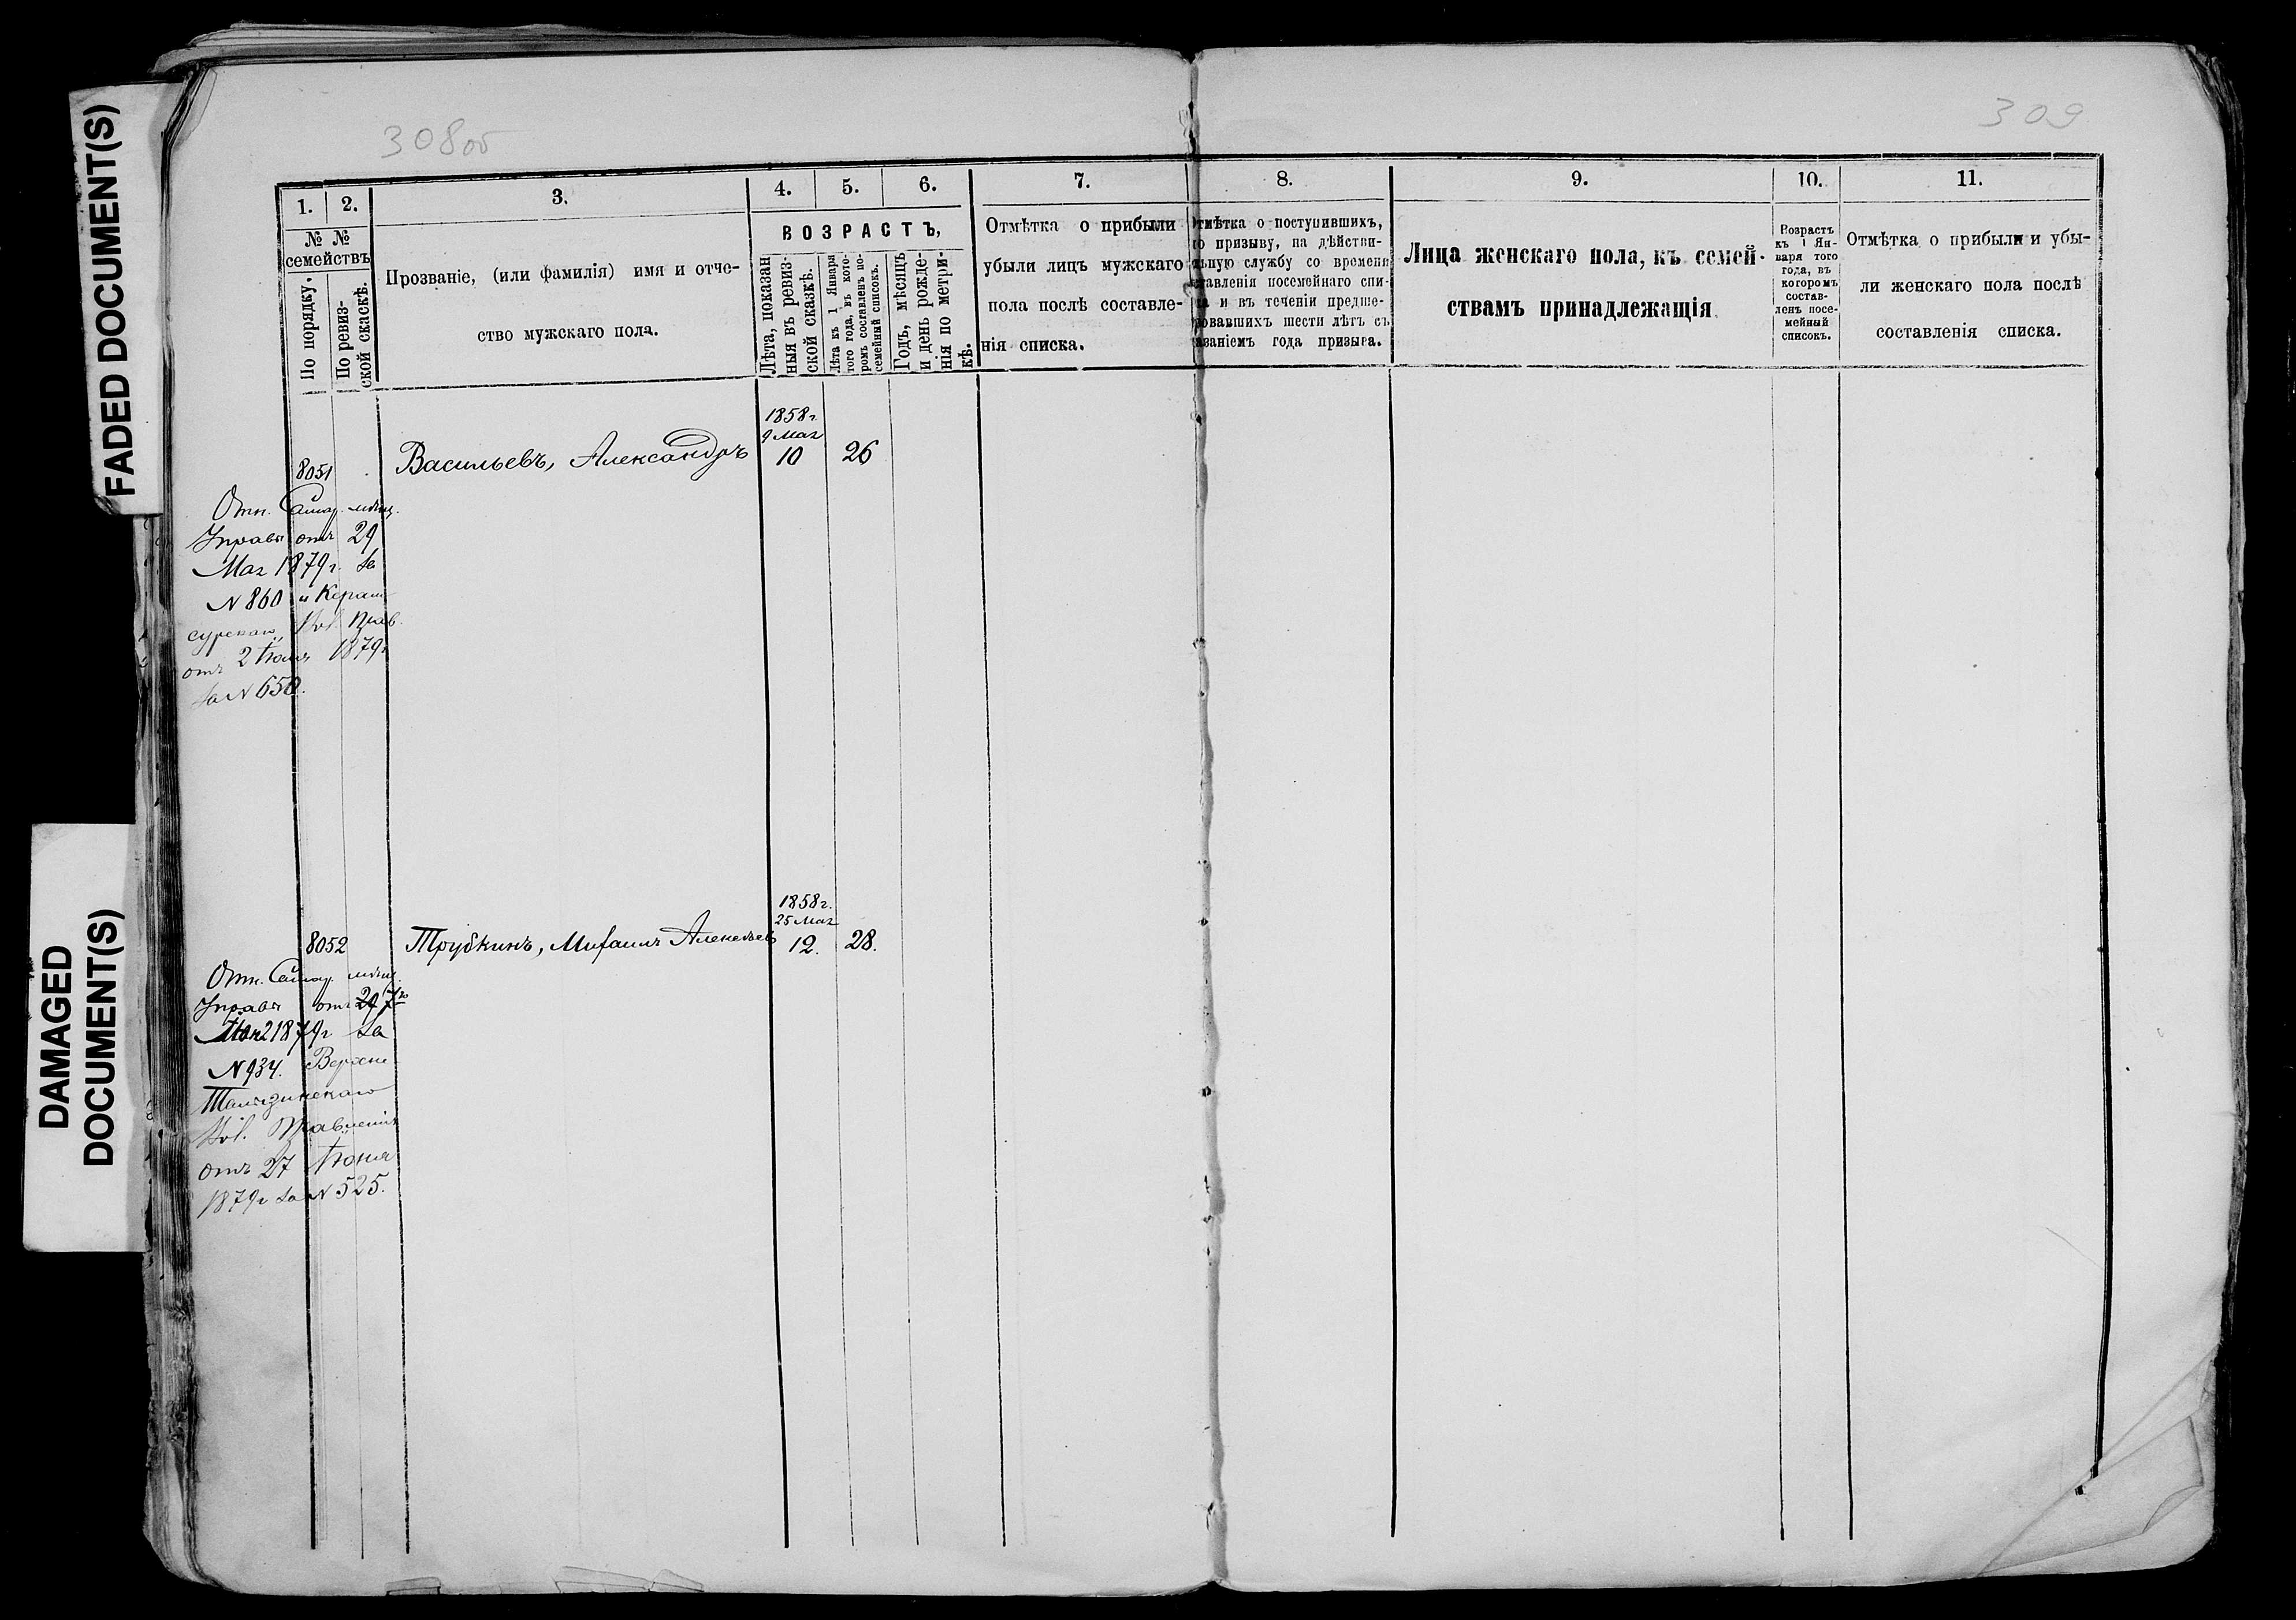 FADED DOCUMENT(S)
DAMAGED
DOCUMENT(S)
308об
309
1. 2. 3. 4. 5. 6. 7. 8. 9. 10. 11.
№ №
семействъ
По порядку.
По ревиз-
ской скаскѣ.
Прозваніе, (или фамилія) имя и отче-
ство мужскаго пола.
ВОЗРАСТЪ,
Лѣта, показан
ныя въ ревиз-
ской сказкѣ.
Лѣта къ 1 Января
того года, въ кото-
ромъ составленъ по-
семейный списокъ.
Годъ, мѣсяцъ
и день рожде-
нія по метри-
кѣ.
Отмѣтка о прибыли
убыли лицъ мужскаго
пола послѣ составле-
нія списка.
тмѣтка о поступившихъ,
о призыву, на дѣйстви-
льную службу со времени
тавленія посемейнаго спи-
а и въ теченіи предше-
овавшихъ шести лѣтъ съ
азаніемъ года призыва.
Лица женскаго пола, къ семей-
ствамъ принадлежащія
Возрастъ
къ 1 Ян-
варя того
года, въ
которомъ
состав-
ленъ посе-
мейный
списокъ.
Отмѣтка о прибыли и убы-
ли женскаго пола послѣ
составленія списка.
1858г.
9 Мая
8051 Васильевъ, Александръ 10 26
Отн. Самар. мѣщ.
Управы отъ 29
Мая 1879г. за
N 860 и
Вол. Прав.
отъ 2 Іюня 1879г
за N 650.
1858г.
25 Мая
8052 Трубкинъ, Михаилъ Алексѣевъ 12. 28.
Отн. Самар. мѣщ.
Управы отъ 29 7го
1879г за
N 934. Верхне
Вол. Правленія
отъ 27 Іюня
1879г за N 525.